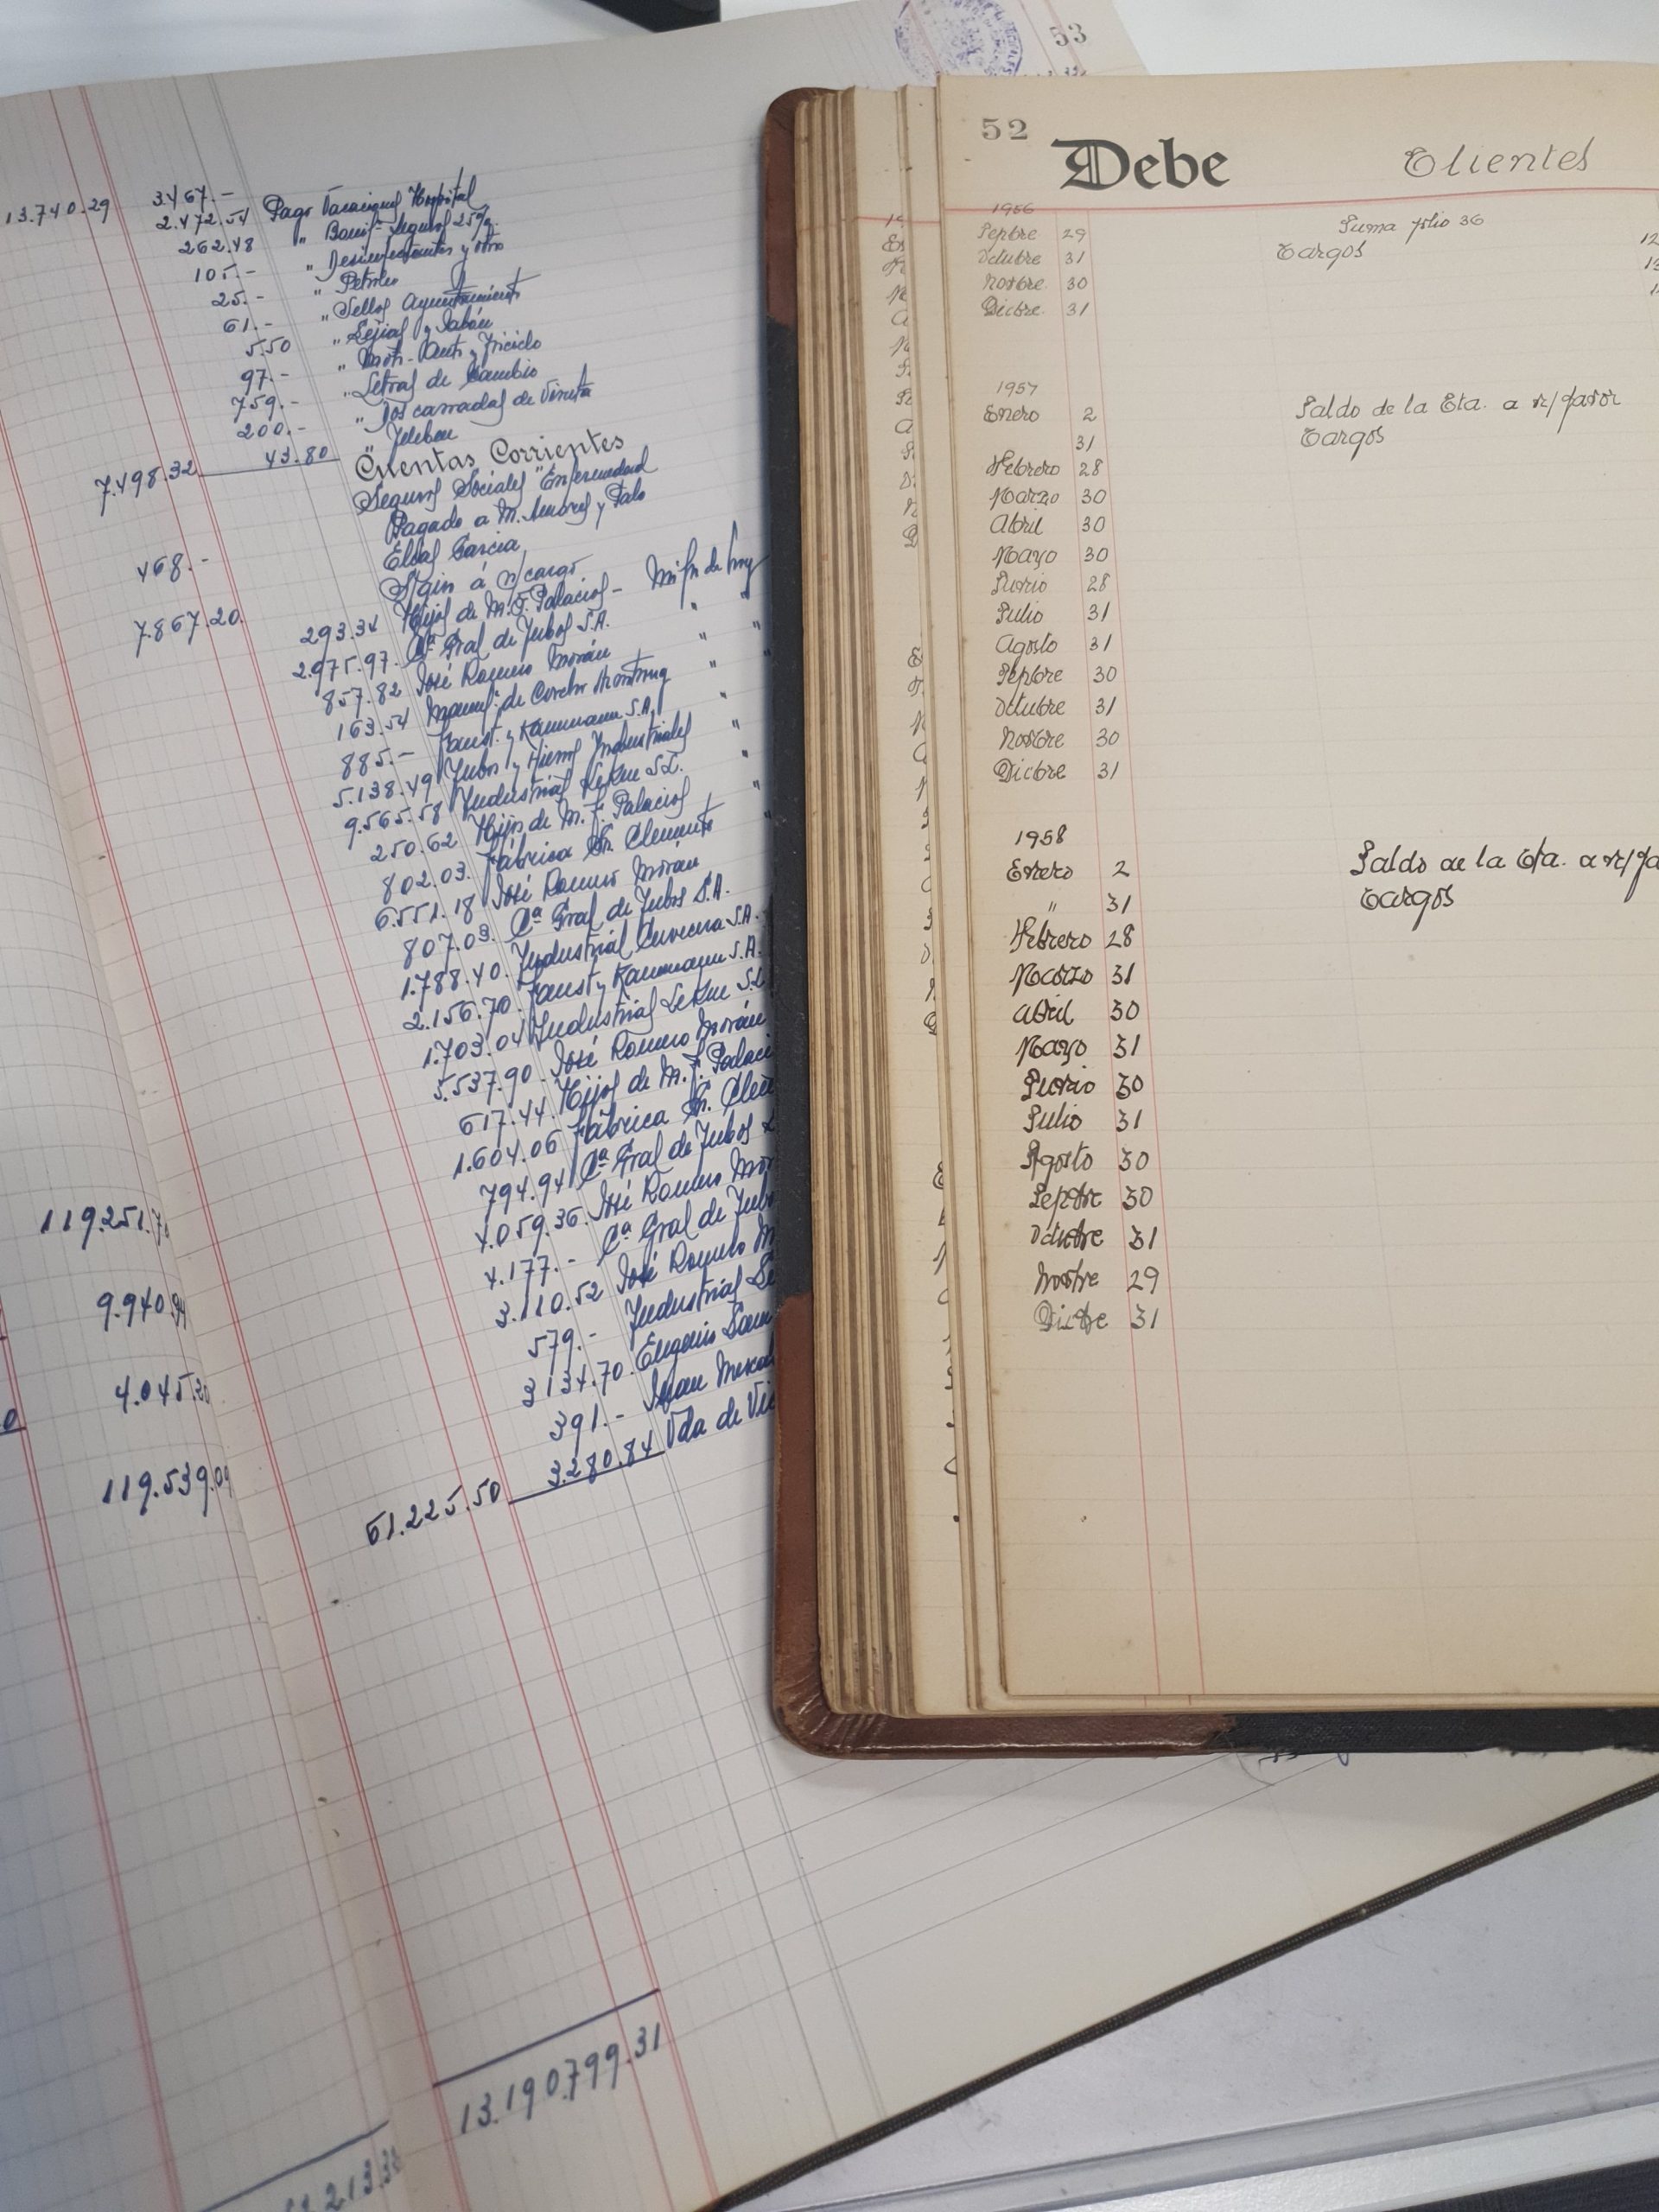 53
13.740.29
3.467.- Pago Vacaciones Hospital
2.472.54 " Bonif. Seguros 25%
262.48 " Desinfectantes y otro
105.- " Petróleo
25.- " Sellos Ayuntamiento
61.- " Lejías y Jabón
5.50
97.- " Letras de Cambio
759.- " Dos carradas de
200.-
7.498.32 43.80
Cuentas Corrientes
Seguros Sociales "Enfermedad
Pagado a M. y
468.- Elías García
S/giro á n/cargo
7.867.20
293.34 Hijos de M. F. Palacios -
2.975.97 Cª Gral de Tubos S.A. " "
857.82 José Romero Morán " "
163.54 Manuf. de Corcho " "
885.- Faust y Kammann S.A. "
5.138.49 Tubos y Hierros Industriales "
9.565.58 Industrial Lekue S.L. "
250.62 Hijos de M. F. Palacios "
802.03 Fábrica Sn. Clemente "
6.551.18 José Romero Morán
807.03 Cª Gral de Tubos S.A.
1.788.40 Industrial Cervecera S.A.
2.156.70 Faust y Kammann S.A.
1.703.04 Industrial Lekue S.L
5.537.90 José Romero Morán
617.44 Hijos de M. F. Palaci
1.604.06 Fábrica Sn. Cle
794.94 Cª Gral de Tubos
4.059.36 José Romero Mor
4.177.- Cª Gral de Tub
3.110.52 José Romero M
579.- Industrial Le
3134.70 Eugenio
391.- Juan
61.225.50 3.280.84 Vda de Vi
119.251.7
9.940.94
4.045.20
0
119.539.09
13.190.799.31
213.38
52 Debe Clientes
1956
Sepbre 29 Suma folio 36
Octubre 31 Cargos
Novbre 30
Dicbre 31
1957
Enero 2 Saldo de la Cta. a n/favor
31 Cargos
Febrero 28
Marzo 30
Abril 30
Mayo 30
Junio 28
Julio 31
Agosto 31
Sepbre 30
Octubre 31
Novbre 30
Dicbre 31
1958
Enero 2 Saldo de la Cta. a n/fa
" 31 Cargos
Febrero 28
Marzo 31
Abril 30
Mayo 31
Junio 30
Julio 31
Agosto 30
Sepbre 30
Octubre 31
Novbre 29
Dicbre 31